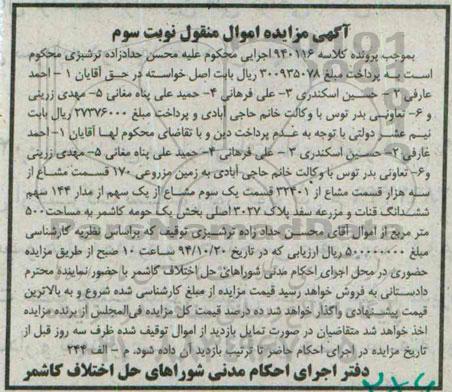 آگهی مزایده اموال منقول نوبت سوم
بموجب پرونده کلاسه ۹۴۰۱۱۶ اجرایی محکوم علیه محسن حدادزاده ترشیزی محکوم
است به پرداخت مبلغ ۳۰۰۹۳۵۰۷۸ ریال بابت اصل خواسته در حق آقایان ۱- احمد
عارفی ۲- حسین اسکندری ۳- علی فرهانی ۴- حمید علی پناه مغانی ۵- مهدی زرینی
و ۶- تعاونی بدر توس با وکالت خانم حاجی آبادی و پرداخت مبلغ ۲۷۳۷۶۰۰۰ ریال بابت
نیم عشر دولتی با توجه به عدم پرداخت دین و با تقاضای محکوم لها آقایان ۱- احمد
عارفی ۲- حسین اسکندری ۳- علی فرهانی ۴- حمید علی پناه مغانی ۵- مهدی زرینی
و۶- تعاونی بدر توس با وکالت خانم حاجی آبادی به زمین مزروعی ۱۷۰ قسمت مشاع از
سه هزار قسمت مشاع از ۳۲۴۰۱ قسمت یک سوم مشاع از یک سهم از مدار ۱۴۴ سهم
ششدانگ قنات و مزرعه سفد پلاک ۳۰۲۷ اصلی بخش یک حومه کاشمر به مساحت ۵۰۰
متر مربع از اموال آقای محسن حداد زاده ترشیزی توقیف که براساس نظریه کارشناسی
مبلغ ۵۰۰۰۰۰۰۰۰ ریال ارزیابی که در تاریخ ۹۴/۱۰/۲۰ ساعت ۱۰ صبح از طریق مزایده
حضوری در محل اجرای احکام مدنی شوراهای حل اختلاف کاشمر با حضور نماینده محترم
دادستانی به فروش خواهد رسید قیمت مزایده از مبلغ کارشناسی شده شروع و به بالاترین
قیمت پیشنهادی واگذار خواهد شد ده درصد قیمت کل مزایده فی‌المجلس از برنده مزایده
اخذ خواهد شد متقاضیان در صورت تمایل بازدید از اموال توقیف شده ظرف سه روز قبل از
تاریخ مزایده در اجرای احکام حاضر تا ترتیب بازدید آن داده شود. م - الف ۲۴۴
دفتر اجرای احکام مدنی شوراهای حل اختلاف کاشمر